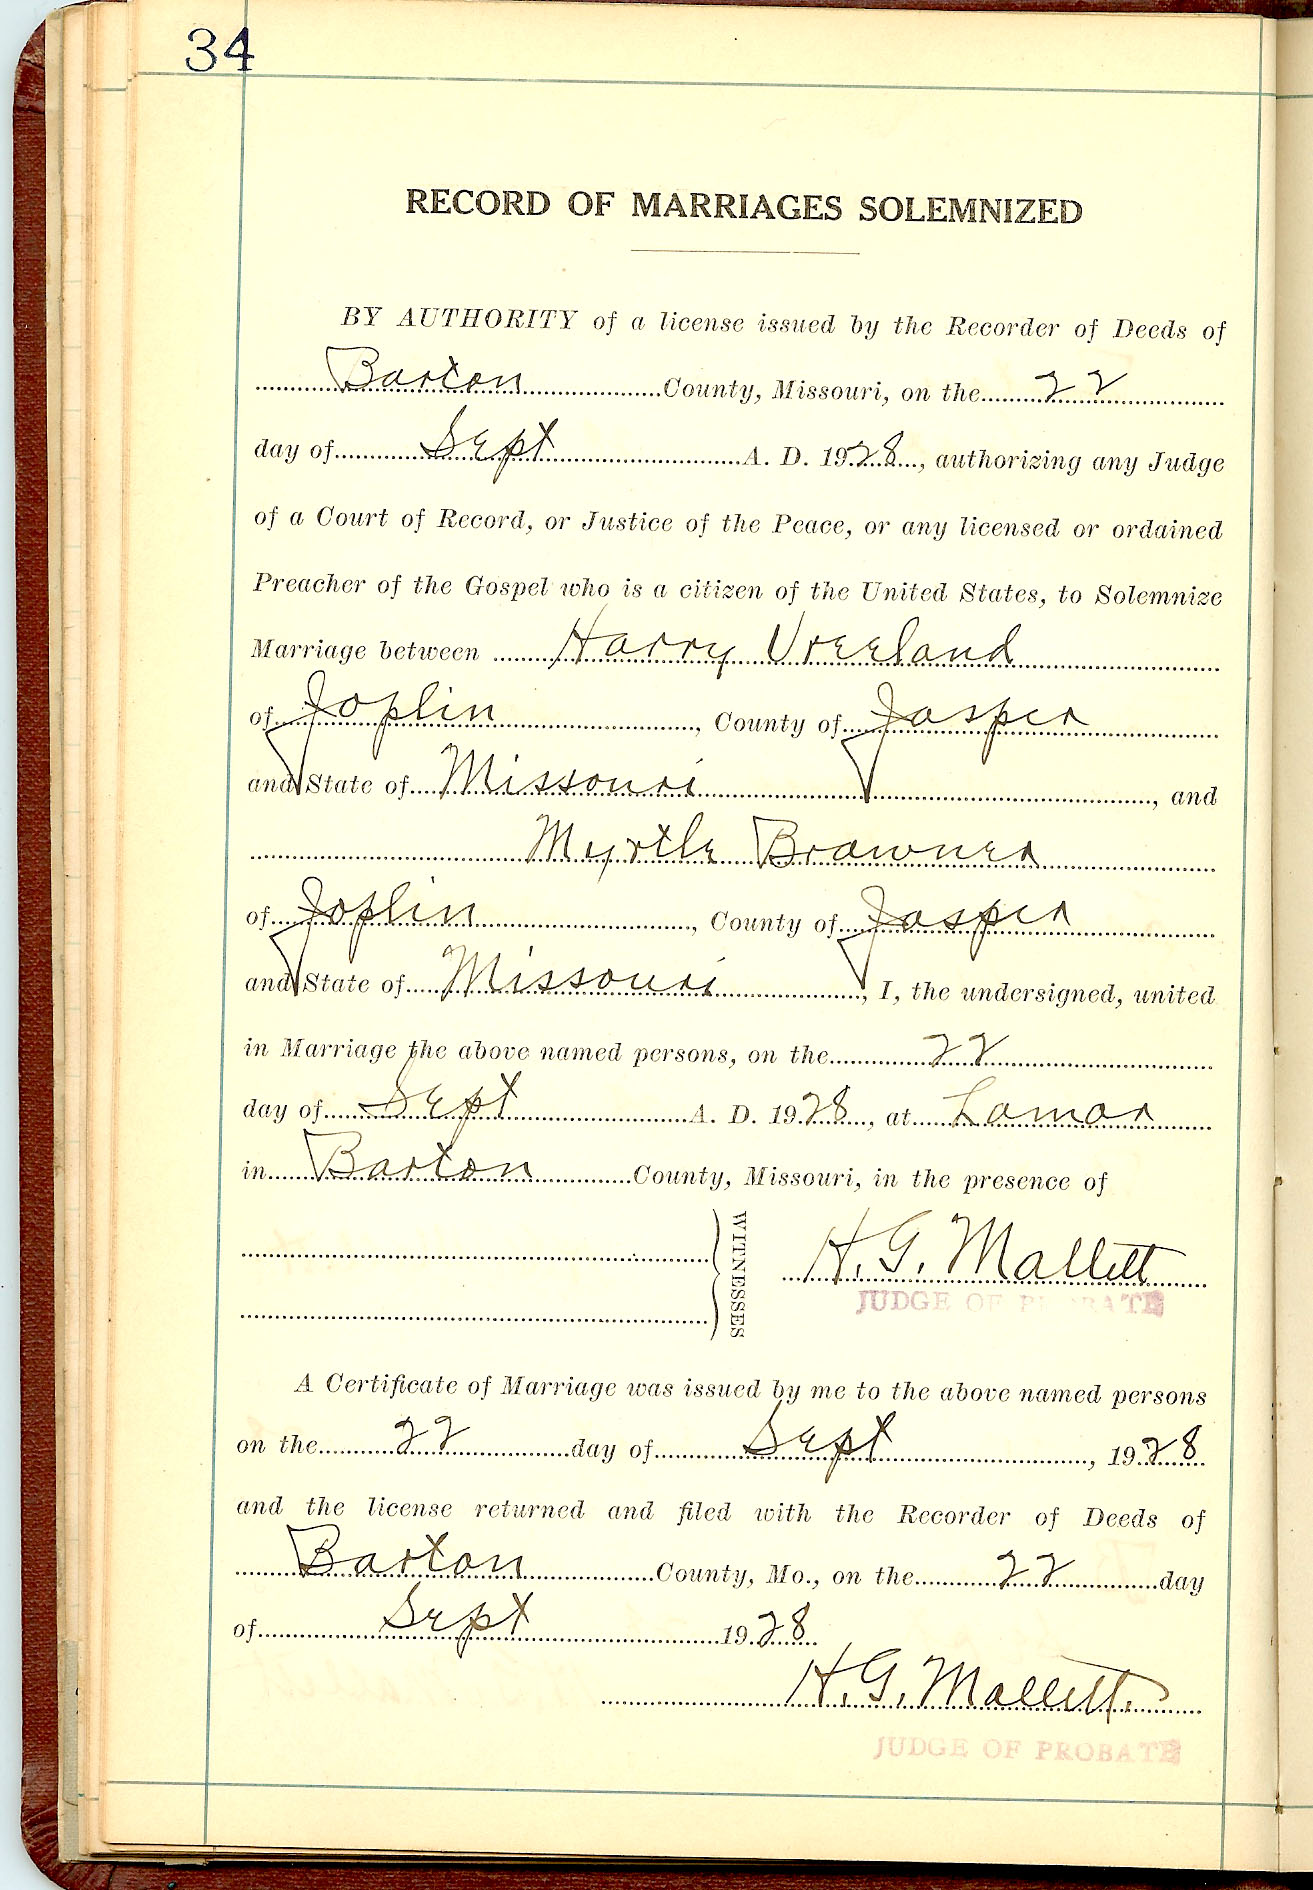 34
RECORD OF MARRIAGES SOLEMNIZED
BY AUTHORITY of a license issued by the Recorder of Deeds of
Barton County, Missouri, on the 22
day of Sept A. D. 1928, authorizing any Judge
of a Court of Record, or Justice of the Peace, or any licensed or ordained
Preacher of the Gospel who is a citizen of the United States, to Solemnize
Marriage between Harry Vreeland
of Joplin, County of Jasper
and State of Missouri, and
Myrtle Brawner
of Joplin, County of Jasper
and State of Missouri, I, the undersigned, united
in Marriage the above named persons, on the 22
day of Sept A. D. 1928, at Lamar
in Barton County, Missouri, in the presence of
WITNESSES
H. G. Mallett
JUDGE OF PROBATE
A Certificate of Marriage was issued by me to the above named persons
on the 22 day of Sept, 1928
and the license returned and filed with the Recorder of Deeds of
Barton County, Mo., on the 22 day
of Sept 1928
H. G. Mallett.
JUDGE OF PROBATE